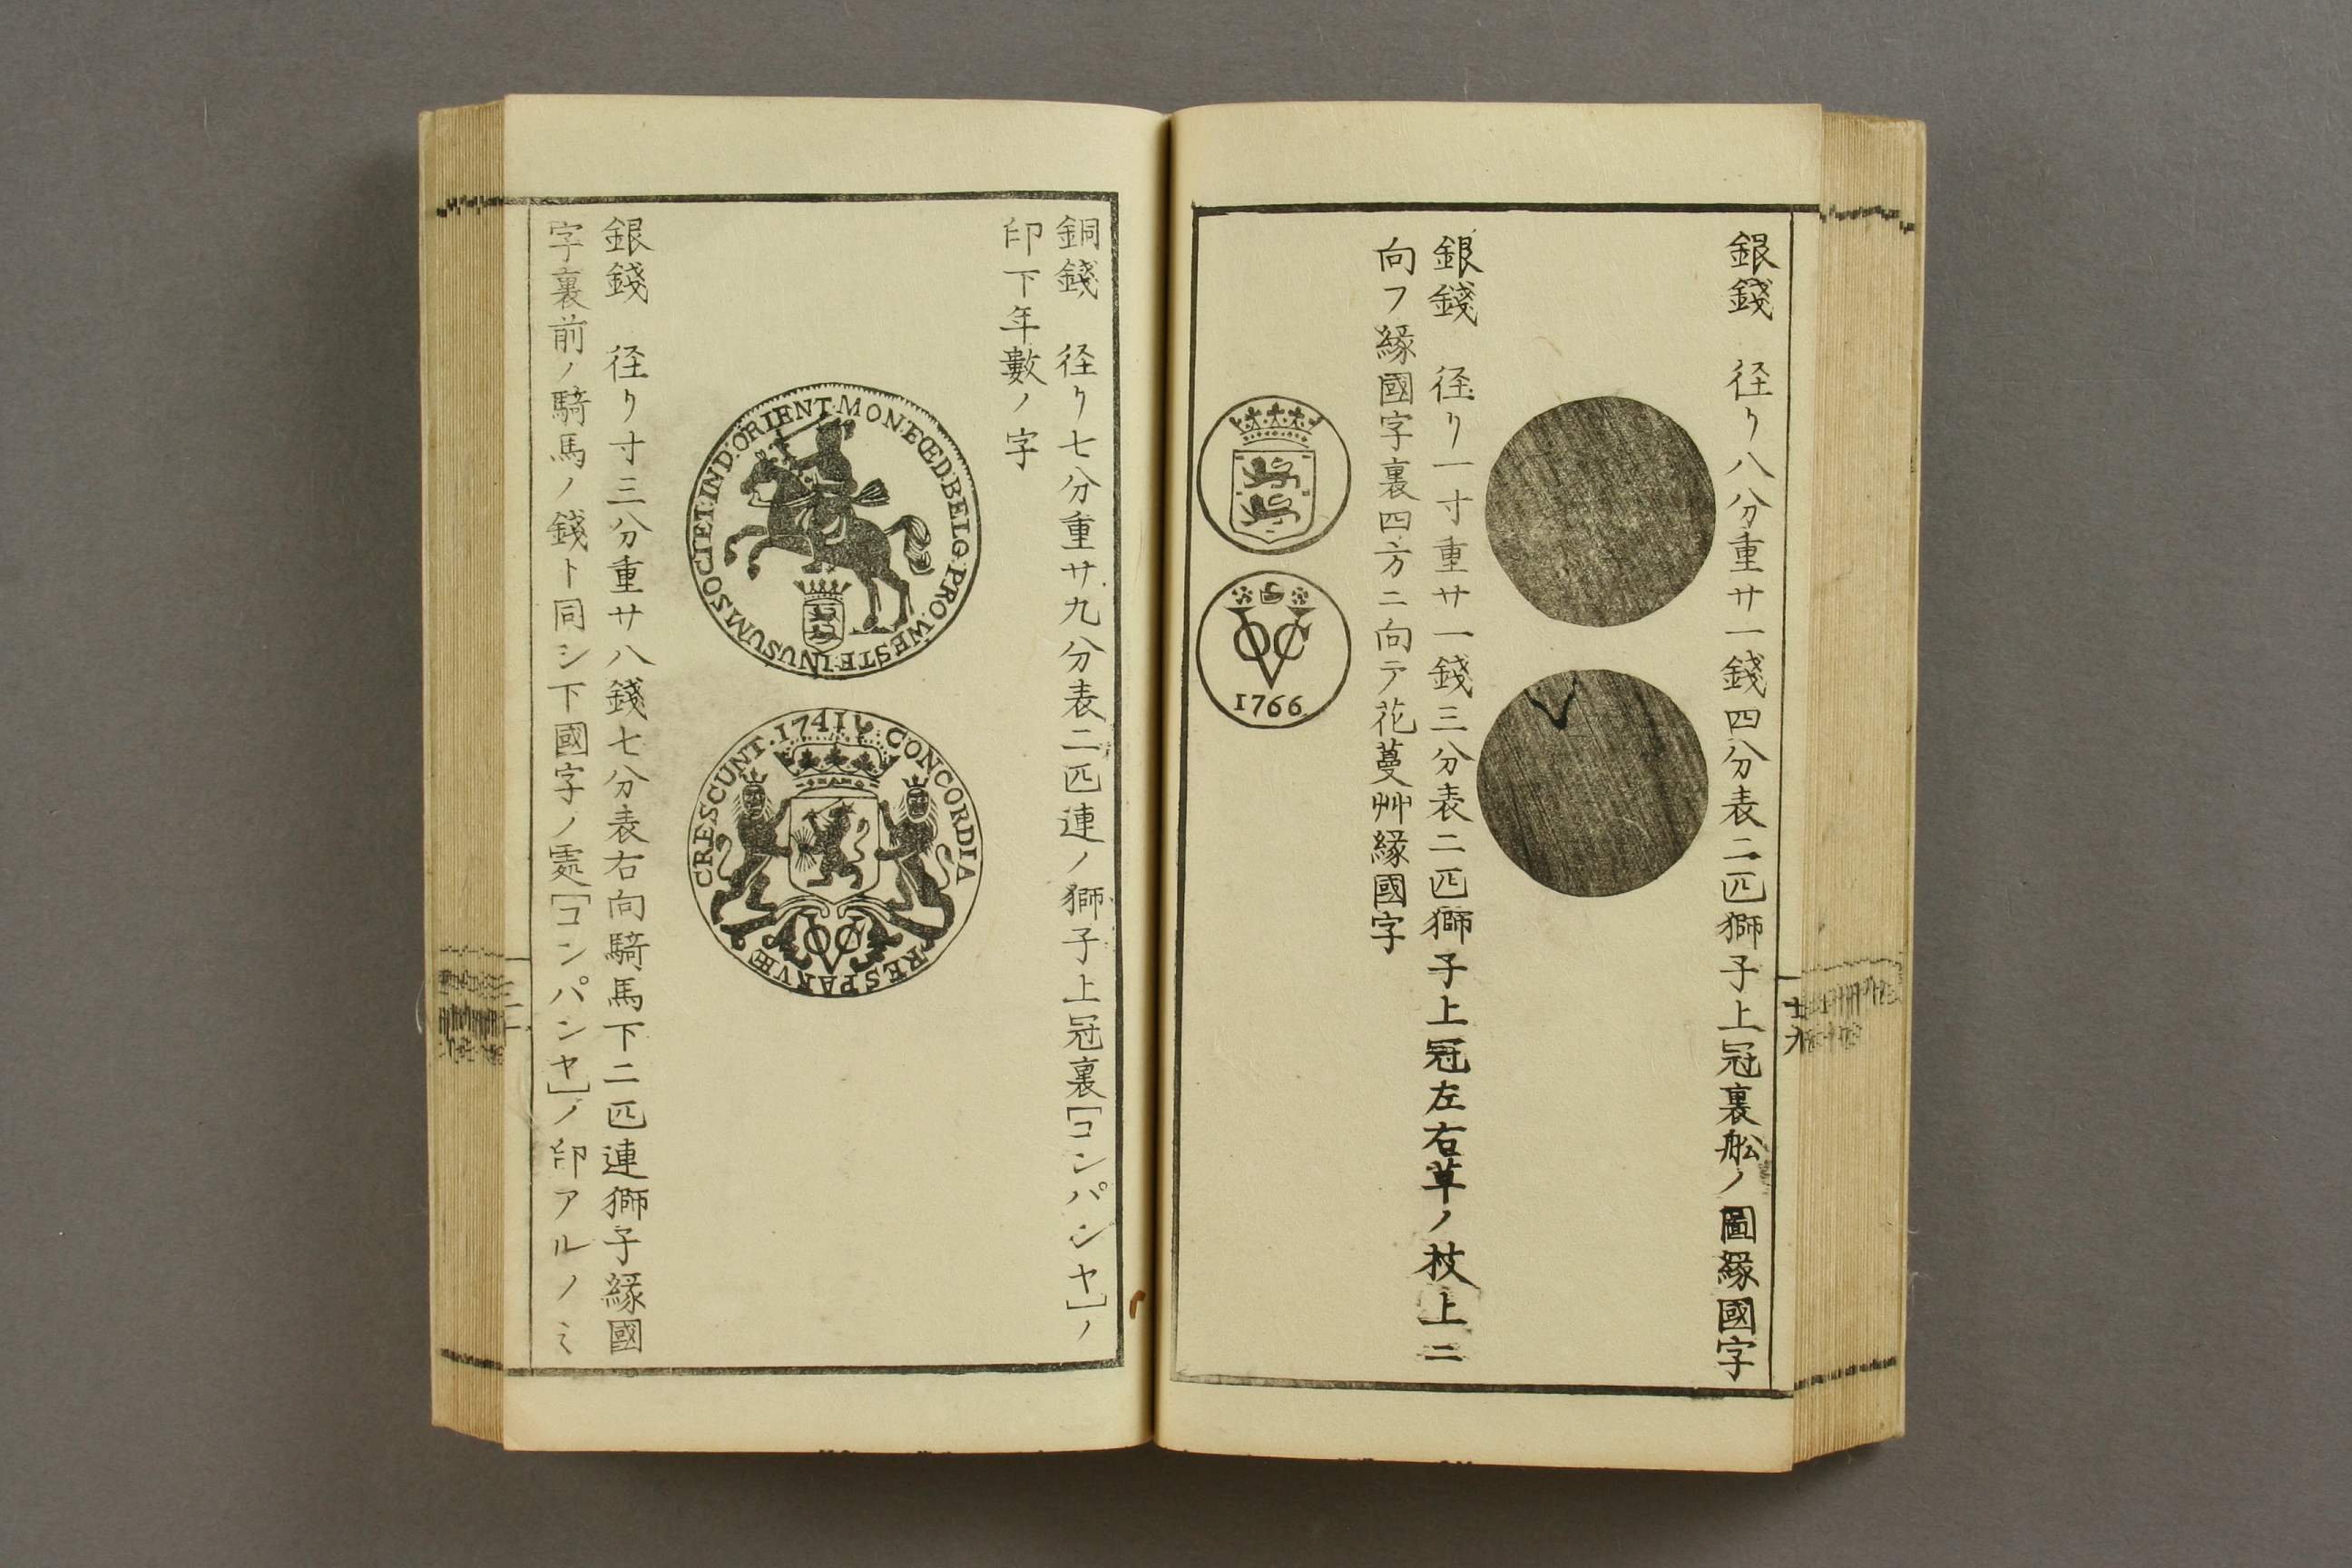 銀錢　径リ八分重サ一錢四分表二匹獅子上冠裏舩ノ圖縁國字
銀錢　径リ一寸重サ一錢三分表二匹獅子上冠左右草ノ枝上ニ
向フ縁國字裏四方ニ向テ花蔓艸縁國字
VOC
1766
十九
銅錢　径リ七分重サ九分表二匹連ノ獅子上冠裏[コンパンヤ]ノ
印下年數ノ字
MON:FŒD:BELG:PRO:WESTF:INUSUMSOCIET:IND:ORIENT
1741
CONCORDIA
RESPARVÆ
CRESCUNT
VOC
銀錢　径リ寸三分重サ八錢七分表右向騎馬下二匹連獅子縁國
字裏前ノ騎馬ノ錢ト同シ下國字ノ處[コンパンヤ]ノ印アルノミ